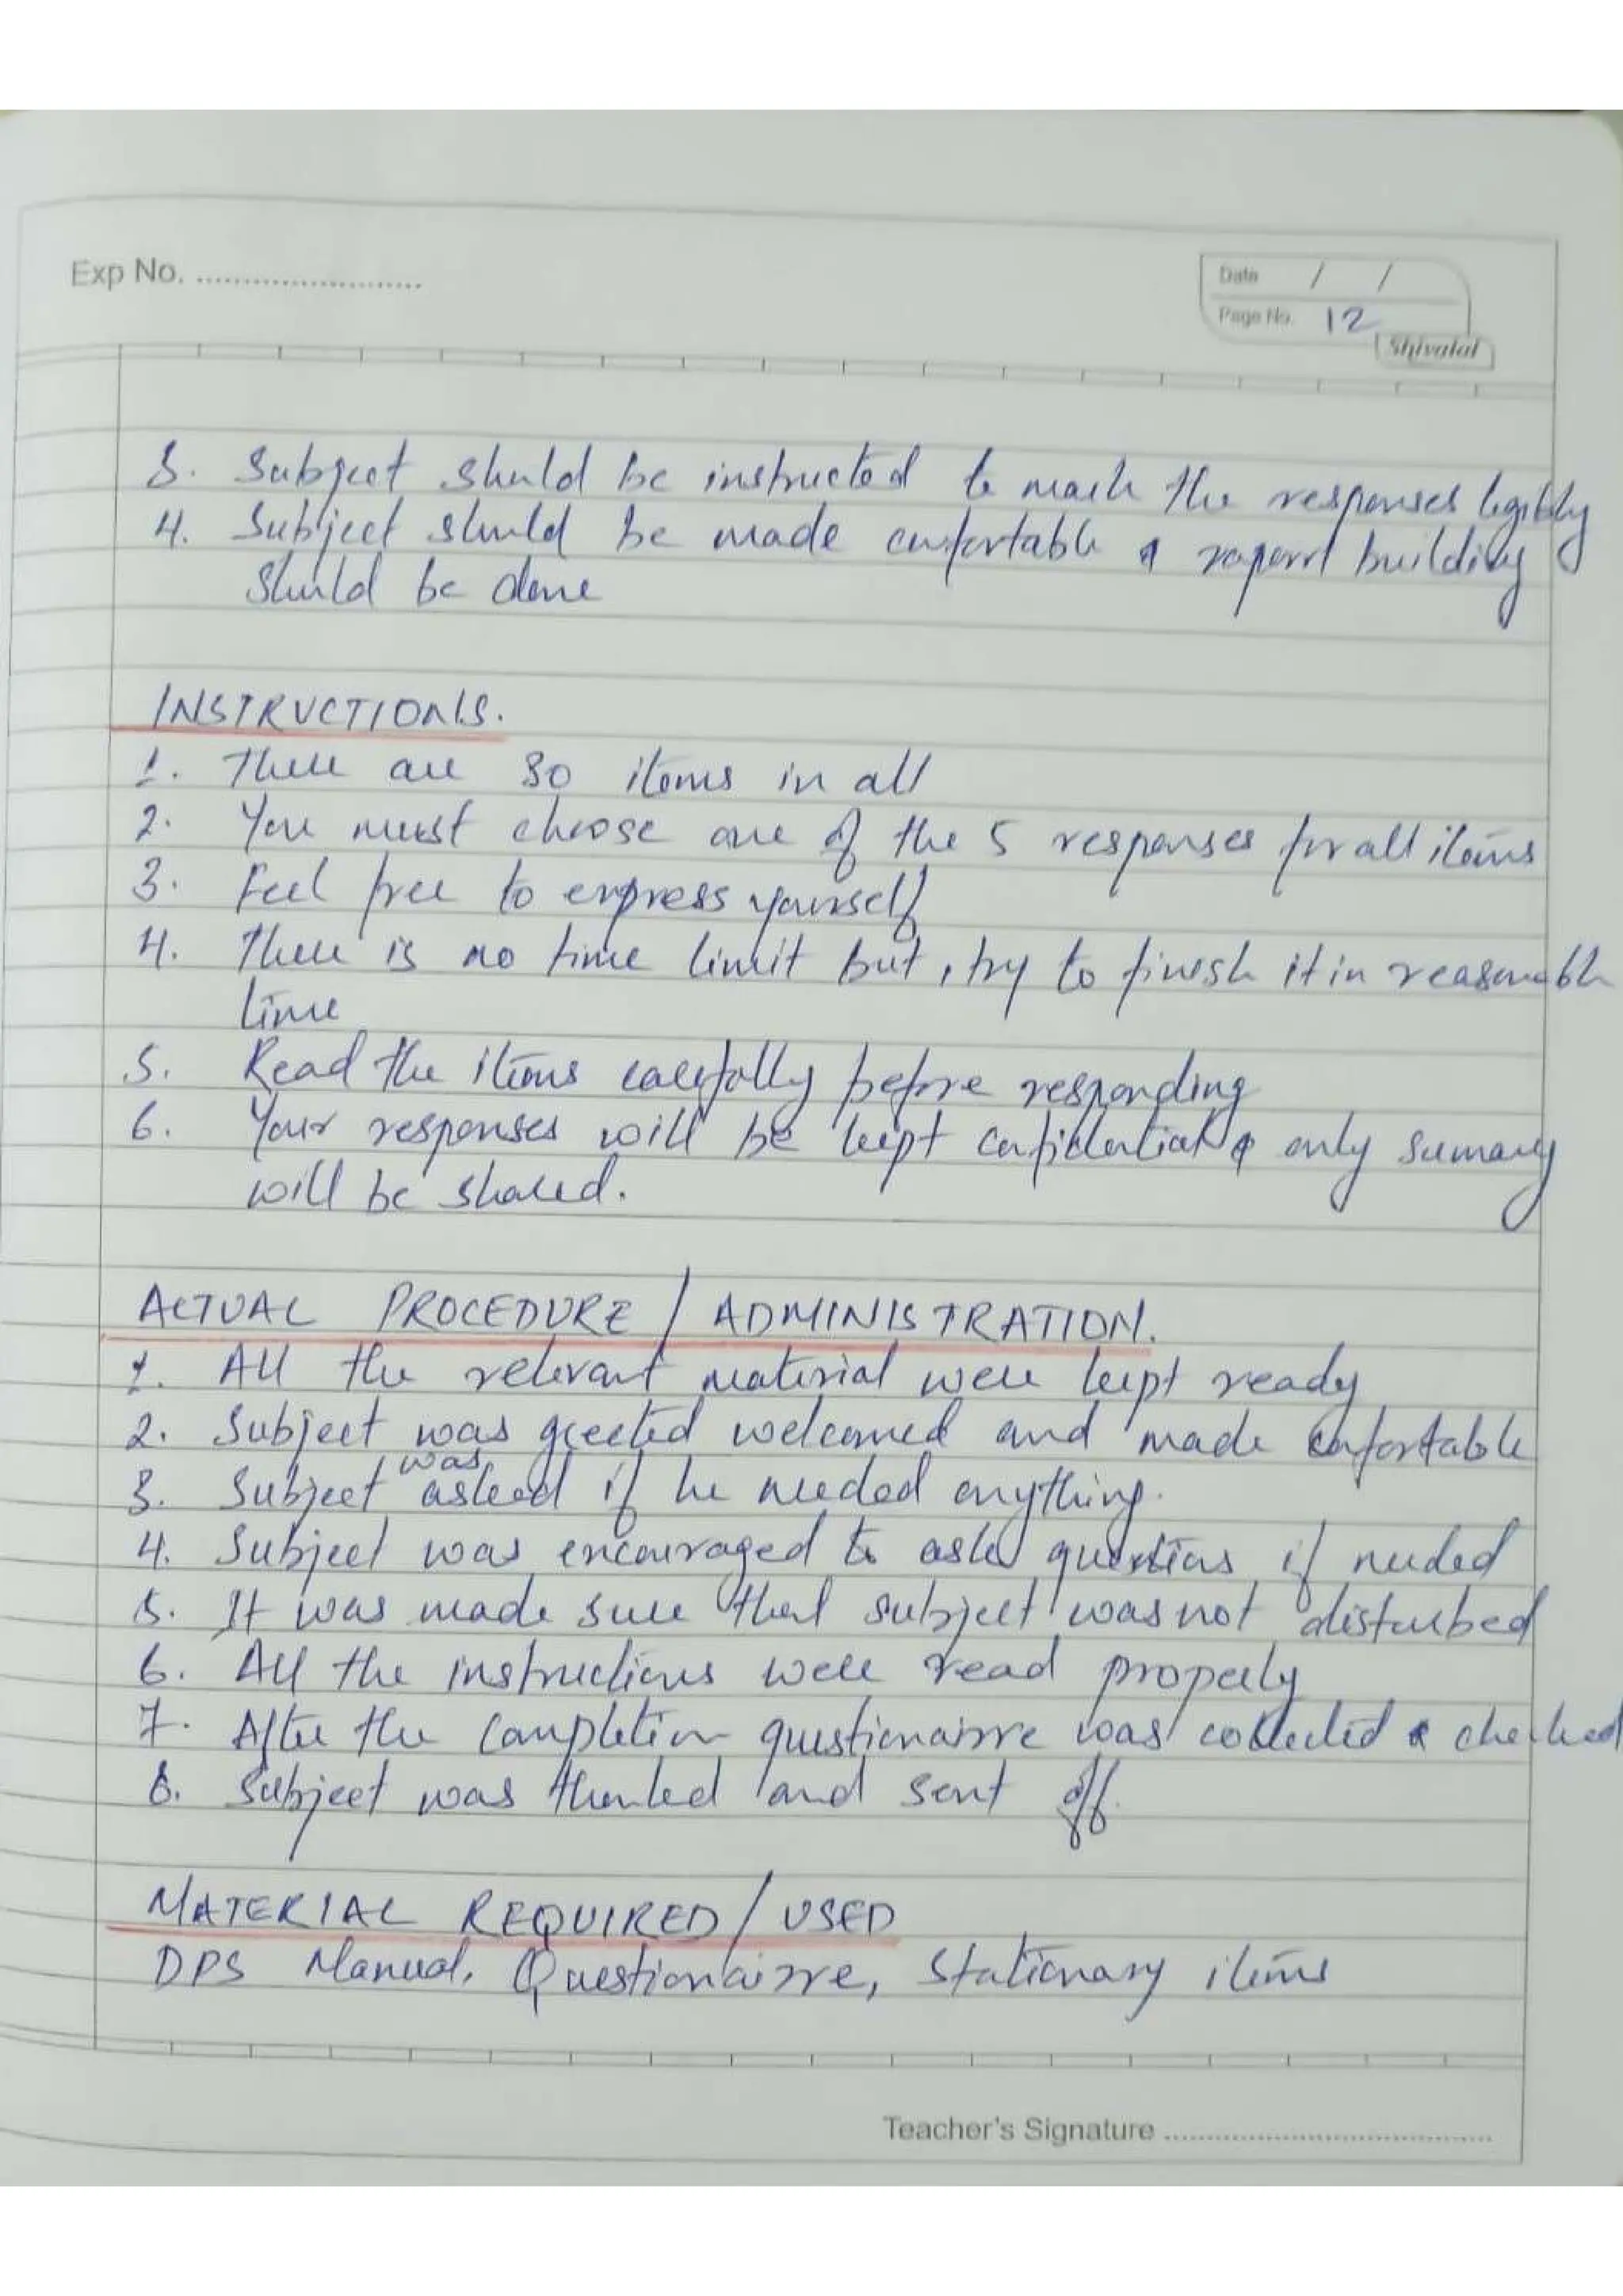 Exp No. ........................
Date / /
Page No. 12
Shivalal
3. Subject should be instructed to mark the responses legibly
4. Subject should be made comfortable & raport building
should be done
INSTRUCTIONS.
1. There are 30 items in all
2. You must choose one of the 5 responses for all items
3. Feel free to express yourself
4. There is no time limit but, try to finish it in reasonable
time
5. Read the items carefully before responding
6. Your responses will be kept confidential & only sumary
will be shared.
ACTUAL PROCEDURE / ADMINISTRATION.
1. All the relevant material were kept ready
2. Subject was greeted welcomed and made comfortable
3. Subject was asked if he needed anything.
4. Subject was encouraged to ask questions if needed
5. It was made sure that subject was not disturbed
6. All the instructions were read properly
7. After the completion questionairre was collected & checked
8. Subject was thanked and sent off.
MATERIAL REQUIRED / USED
DPS Manual, Questionairre, Stationary items
Teacher's Signature ........................................